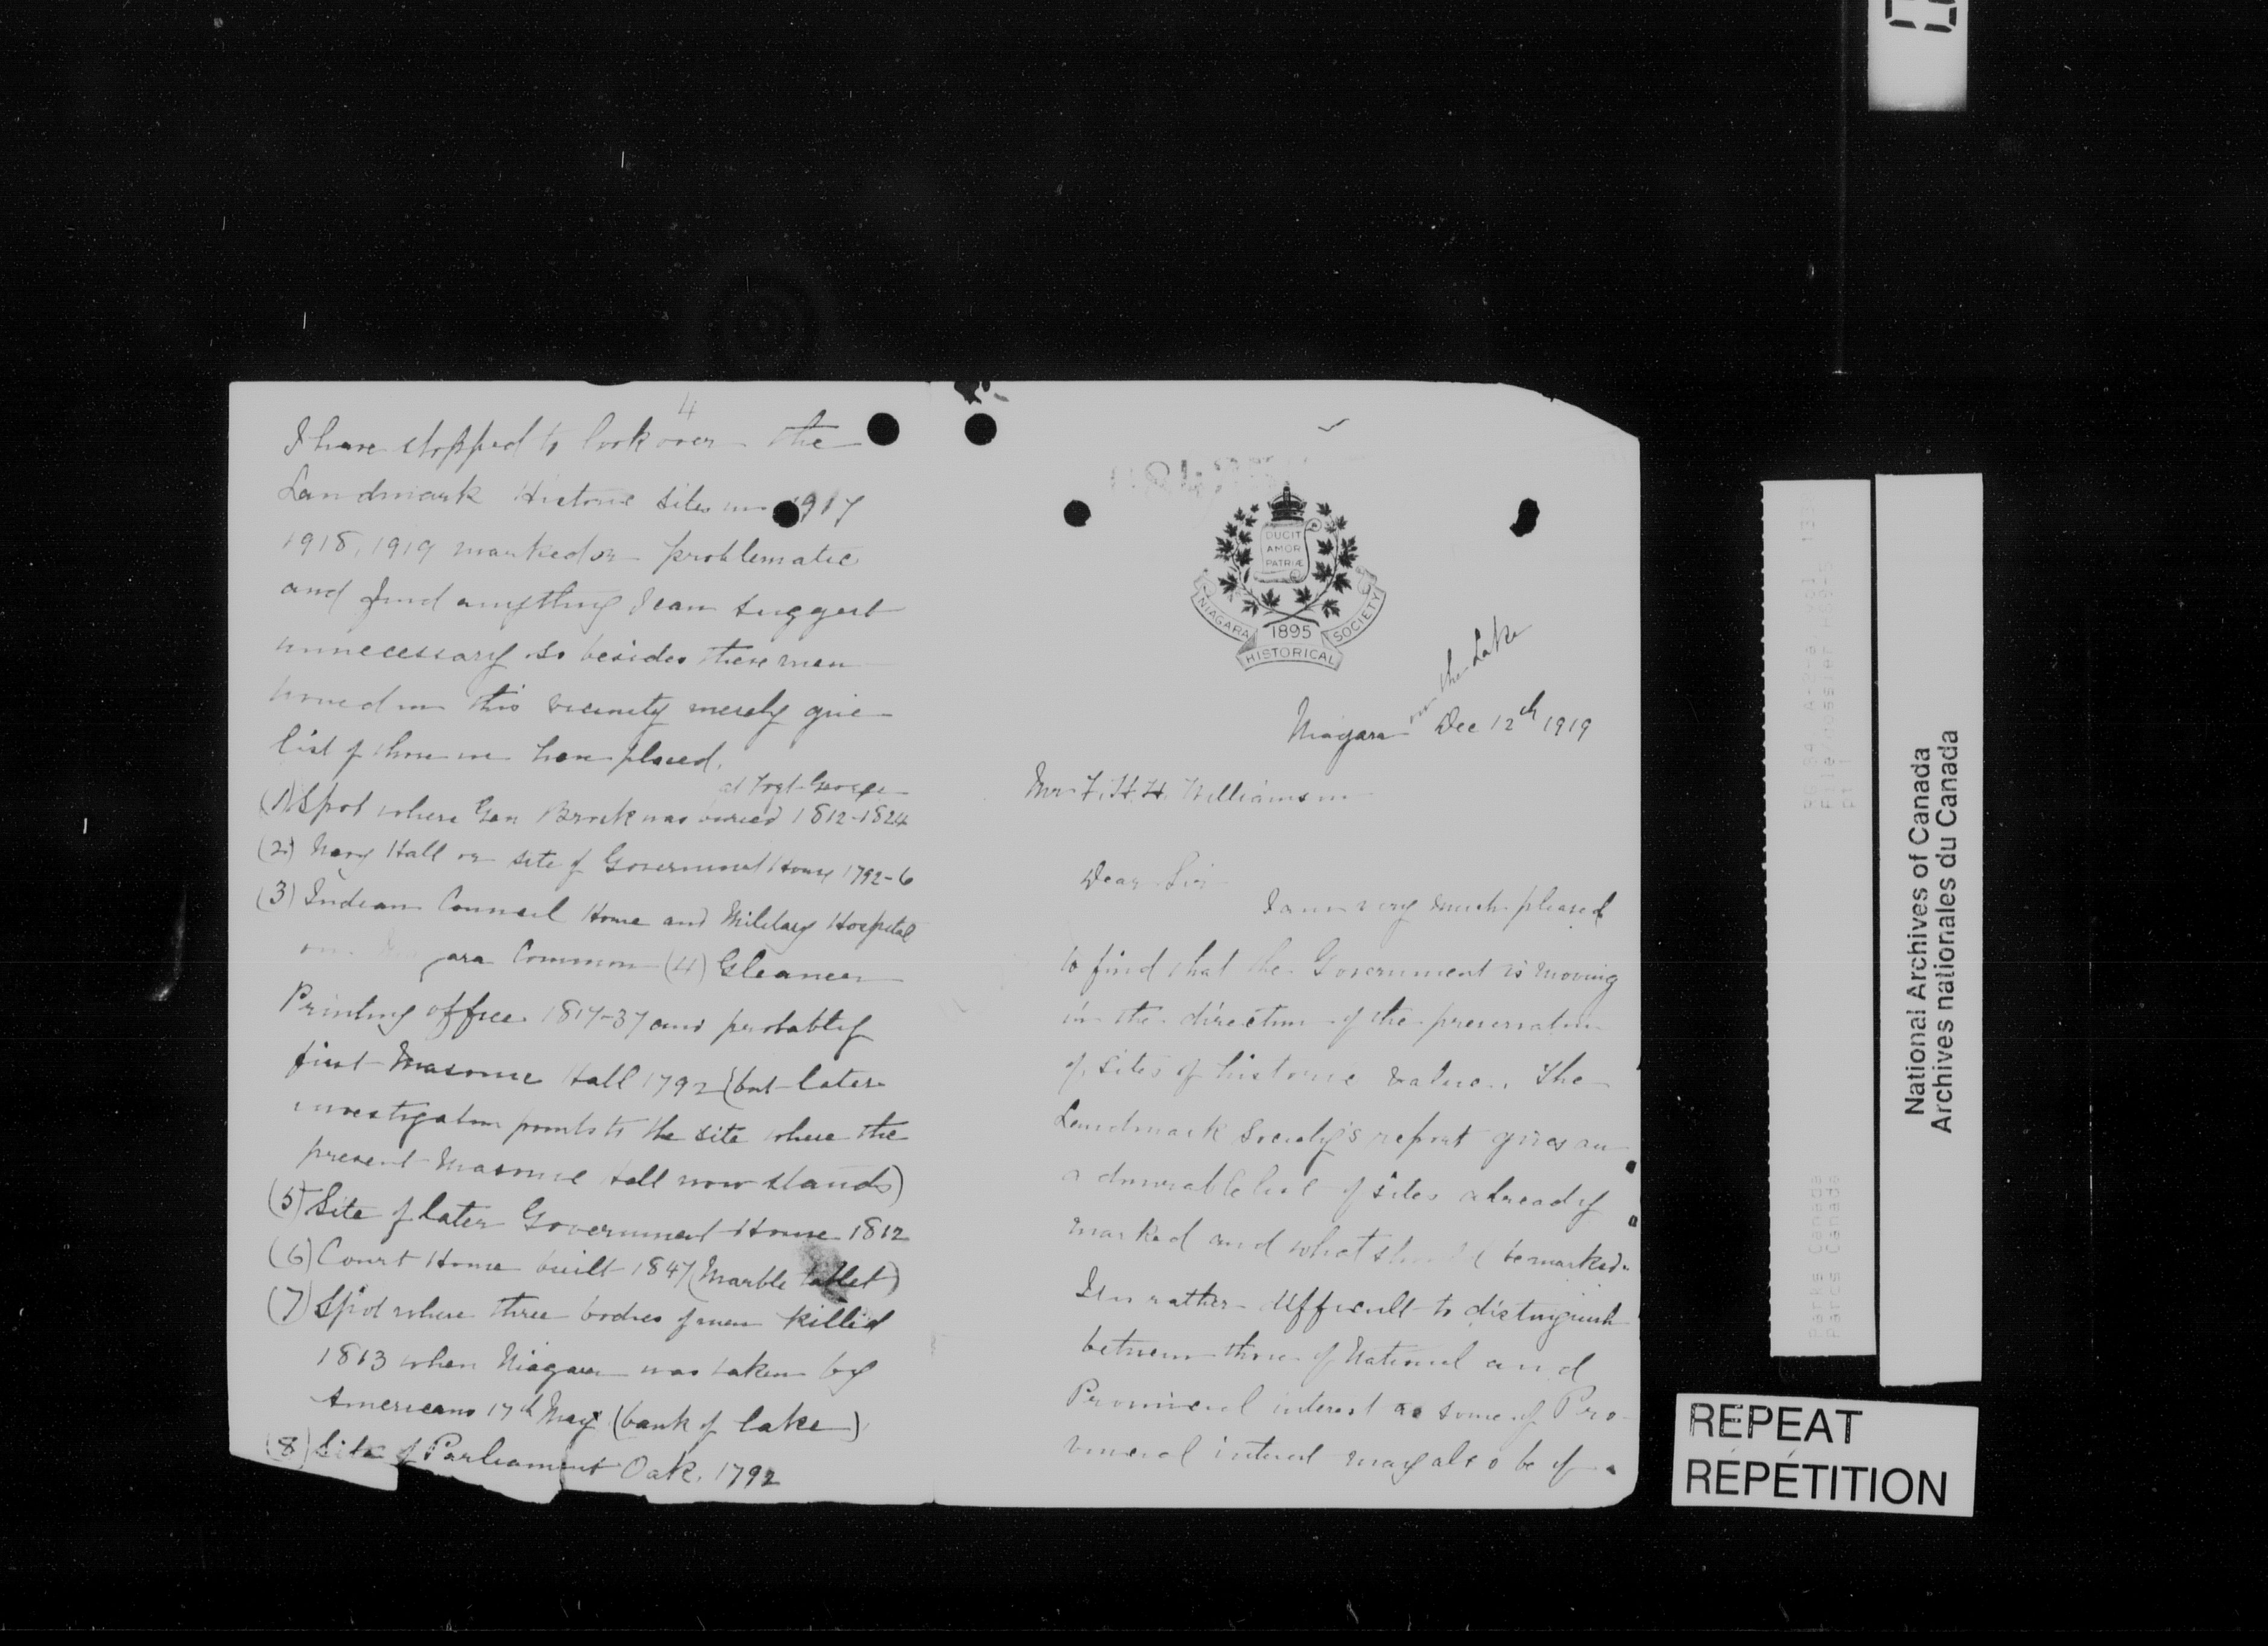 4
I have stopped to look over the
Landmark Historic sites in 1917
1918, 1919 marked or problematic
and find anything I can suggest
unnecessary so besides these men
tioned in this vicinity merely give
list of those we have placed.
at Fort George
(1) Spot where Gen Brock was buried 1812-1824
(2) Navy Hall or site of Government House 1792-6
(3) Indian Council House and Military Hospital
on ara Common (4) Gleaner
Printing office 1817-37 and probably
first Masonic Hall 1792 (but later
investigation points to the site where the
present Masonic Hall now stands)
(5) Site of later Government House 1812
(6) Court House built 1847 (Marble tablet)
(7) Spot where three bodies of men killed
1813 when Niagara was taken by
Americans 17th May (bank of lake)
(8) Site of Parliament Oak, 1792
DUCIT
AMOR
PATRIÆ
NIAGARA 1895 SOCIETY
HISTORICAL
on the Lake
Niagara Dec 12th 1919
Mr F. H. H. Williamson
Dear Sir
I am very much pleased
to find that the Government is moving
in the direction of the preservation
of sites of historic value. The
Landmark Society's report gives an
admirable list of sites already
marked and what should be marked.
It is rather difficult to distinguish
between those of National and
Provincial interest as some of Pro-
vincial interest may also be of
National Archives of Canada
Archives nationales du Canada
Parks Canada
Parcs Canada
REPEAT
RÉPÉTITION